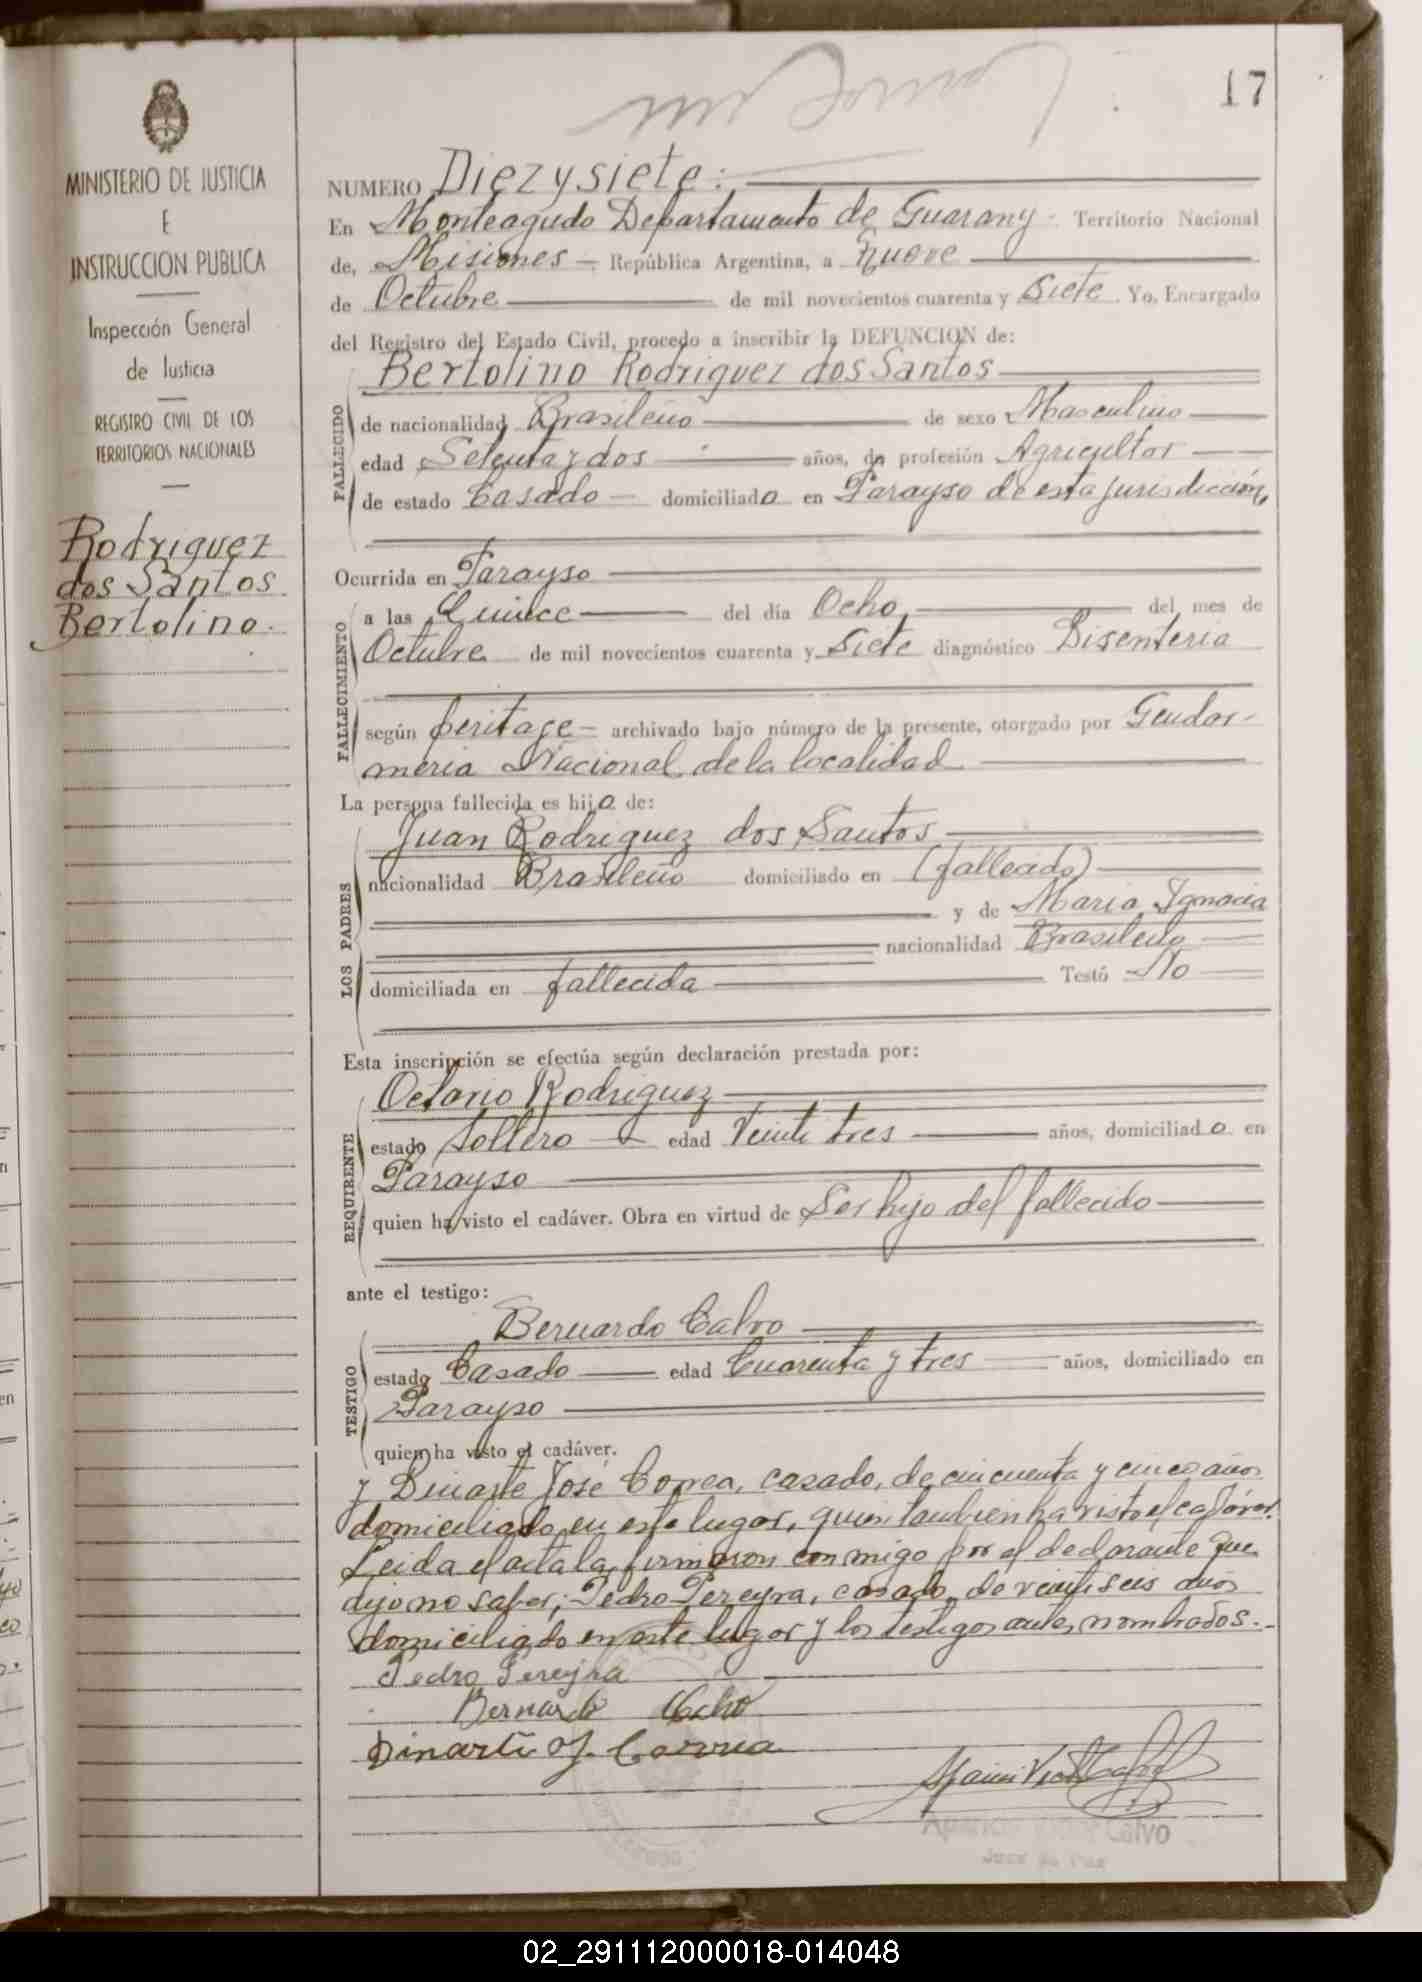 17
MINISTERIO DE JUSTICIA
E
INSTRUCCION PUBLICA
Inspección General
de Justicia
REGISTRO CIVIL DE LOS
TERRITORIOS NACIONALES
Rodriguez
dos Santos
Bertolino.
NUMERO Diezysiete:
En Monteagudo Departamento de Guarany. Territorio Nacional
de, Misiones República Argentina, a nueve
de Octubre de mil novecientos cuarenta y Siete. Yo, Encargado
del Registro del Estado Civil, procedo a inscribir la DEFUNCION de:
Bertolino Rodriguez dos Santos
FALLECIDO
de nacionalidad Brasileño de sexo Masculino
edad Setenta y dos años, de profesión Agricultor
de estado Casado domiciliado en Parayso de esta jurisdicción,
Ocurrida en Parayso
FALLECIMIENTO
a las Quince del día Ocho del mes de
Octubre de mil novecientos cuarenta y Siete diagnóstico Disenteria
según peritage archivado bajo número de la presente, otorgado por Gendar-
meria Nacional de la localidad
La persona fallecida es hijo de:
LOS PADRES
Juan Rodriguez dos Santos
nacionalidad Brasileño domiciliado en (fallecido)
y de Maria Ignacia
nacionalidad Brasileño
domiciliada en fallecida Testó No
Esta inscripción se efectúa según declaración prestada por:
REQUIRENTE
Octavio Rodriguez
estado Soltero edad Veinte tres años, domiciliado en
Parayso
quien ha visto el cadáver. Obra en virtud de Ser hijo del fallecido
ante el testigo:
TESTIGO
Bernardo Calvo
estado Casado edad Cuarenta y tres años, domiciliado en
Parayso
quien ha visto el cadáver.
y Dinarte José Correa, casado, de cincuenta y cinco años
domiciliado en este lugar, quien tambien ha visto el cadáver.
Leida el acta la firmaron conmigo por el declarante que
dijo no saber; Pedro Pereyra, casado, de veintiseis años
domiciliado en este lugar y los testigos antes nombrados.-
Pedro Pereyra
Bernardo
Dinarte J. Correa
Calvo
Juez de Paz
02_291112000018-014048